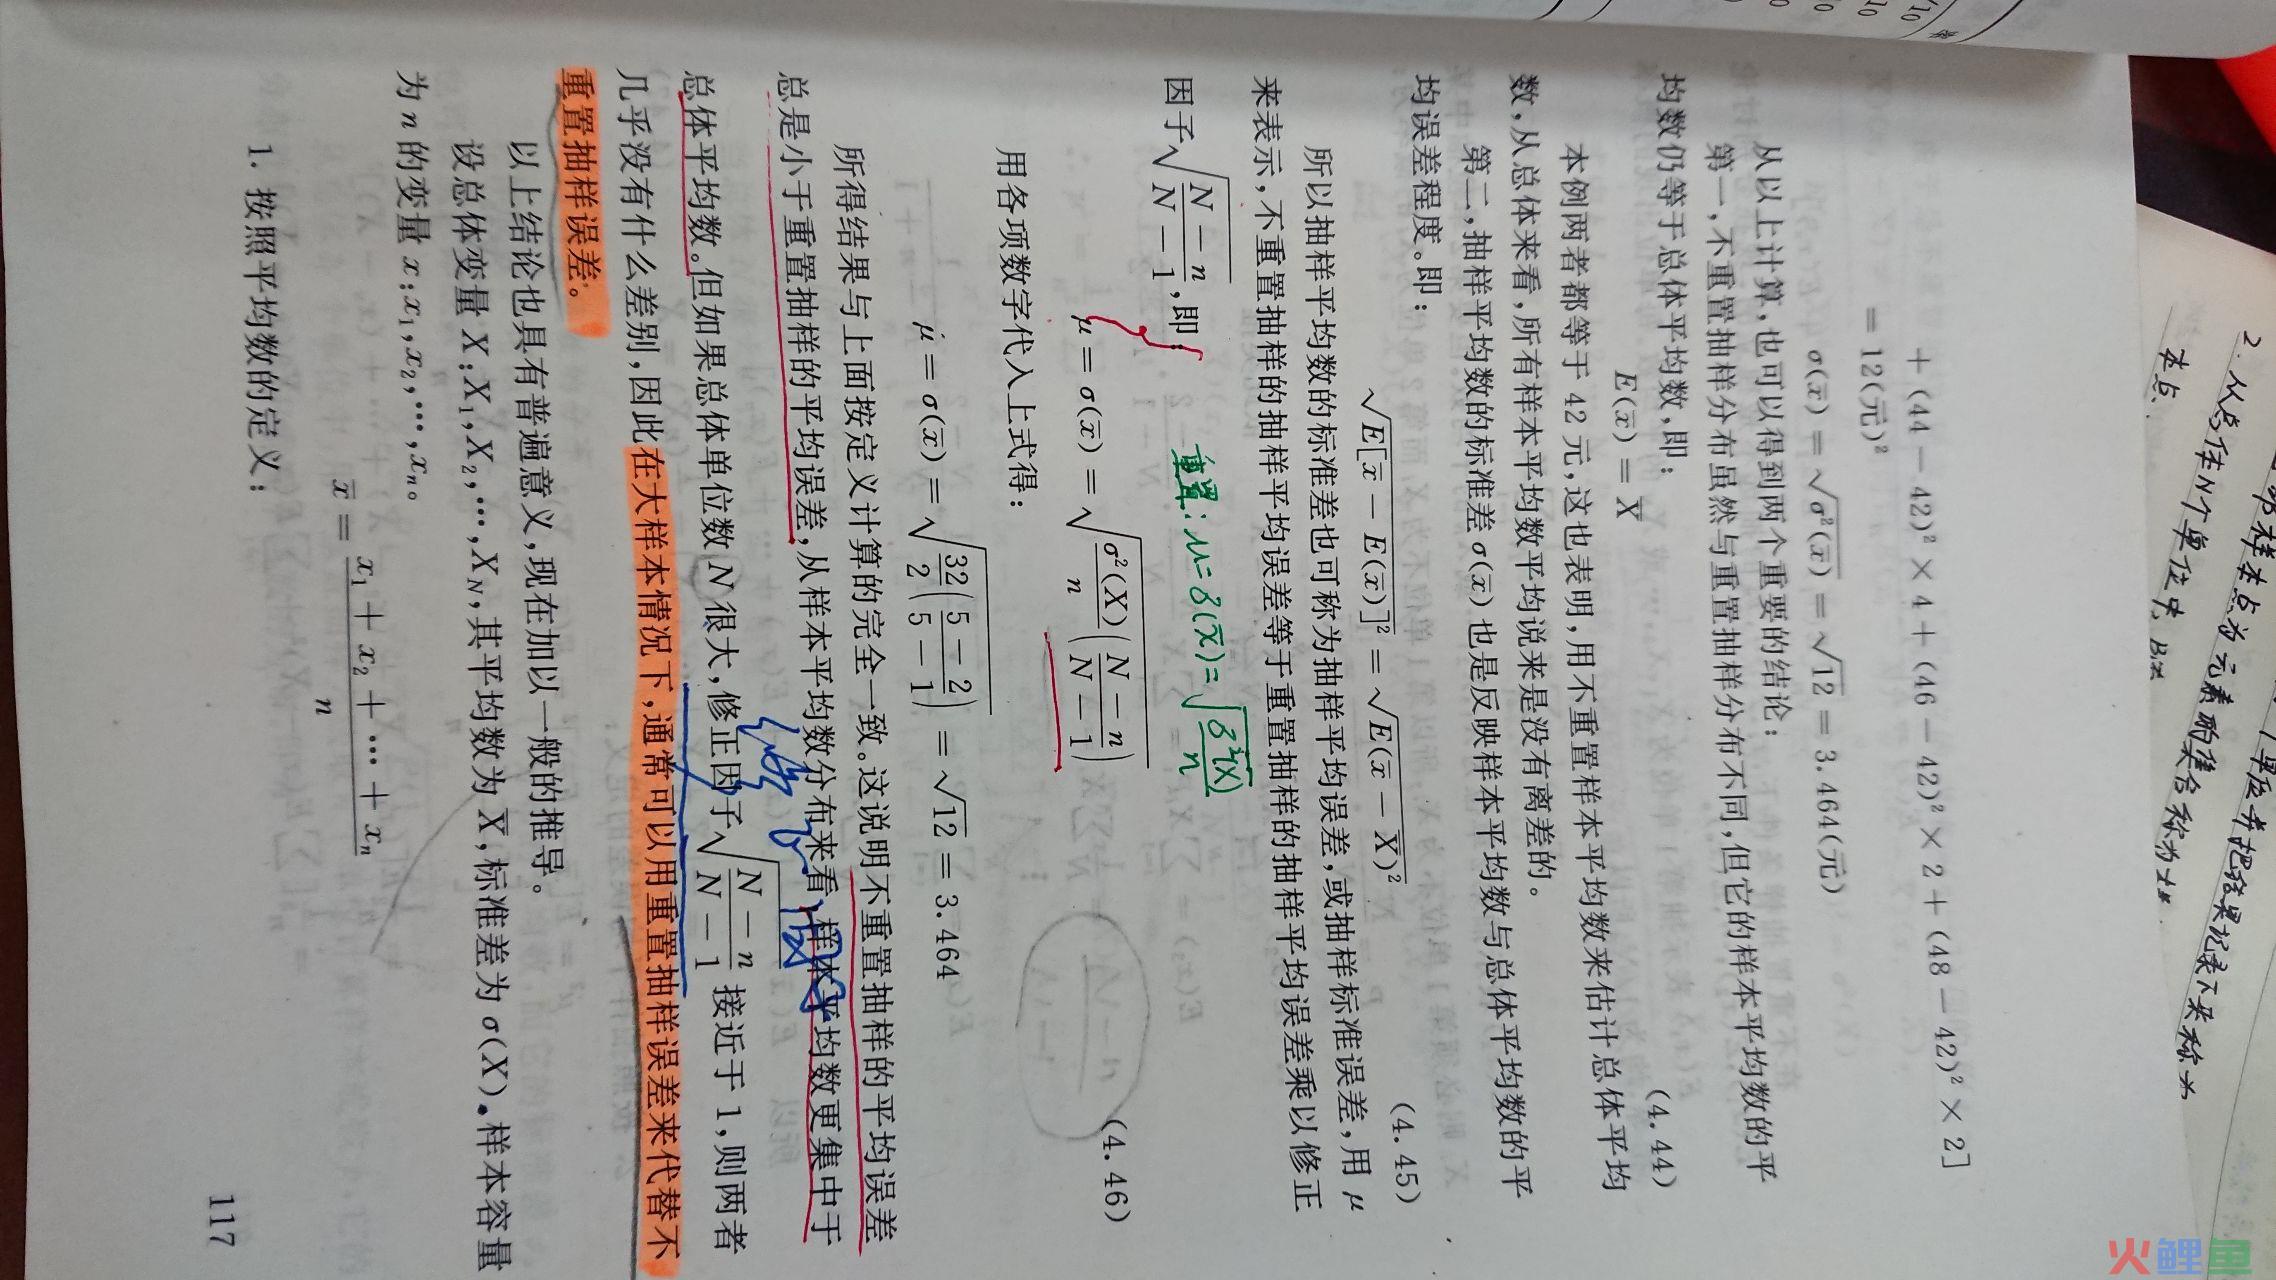 +(44-42)²×4+(46-42)²×2+(48-42)²×2]
=12(元)²
σ(x̄)=√σ²(x̄)=√12=3.464(元)
从以上计算,也可以得到两个重要的结论:
第一,不重置抽样分布虽然与重置抽样分布不同,但它的样本平均数的平
均数仍等于总体平均数,即:
E(x̄)=X̄ (4.44)
本例两者都等于42元,这也表明,用不重置样本平均数来估计总体平均
数,从总体来看,所有样本平均数平均说来是没有离差的。
第二,抽样平均数的标准差σ(x̄)也是反映样本平均数与总体平均数的平
均误差程度。即:
√E[x̄-E(x̄)]²=√E(x̄-X̄)² (4.45)
所以抽样平均数的标准差也可称为抽样平均误差,或抽样标准误差,用μ
来表示,不重置抽样的抽样平均误差等于重置抽样的抽样平均误差乘以修正
因子√((N-n)/(N-1)),即:
重置:μ=δ(x̄)=√(δ²(X)/n)
μ=σ(x̄)=√(σ²(X)/n((N-n)/(N-1))) (4.46)
用各项数字代入上式得:
μ=σ(x̄)=√(32/2((5-2)/(5-1)))=√12=3.464
所得结果与上面按定义计算的完全一致。这说明不重置抽样的平均误差
总是小于重置抽样的平均误差,从样本平均数分布来看,样本平均数更集中于
总体平均数。但如果总体单位数N很大,修正因子√((N-n)/(N-1))接近于1,则两者
几乎没有什么差别,因此在大样本情况下,通常可以用重置抽样误差来代替不
重置抽样误差。
以上结论也具有普遍意义,现在加以一般的推导。
设总体变量X:X₁,X₂,…,X_N,其平均数为X̄,标准差为σ(X)。样本容量
为n的变量x:x₁,x₂,…,xₙ。
x̄=(x₁+x₂+…+xₙ)/n
1. 按照平均数的定义:
117
火鲤鱼